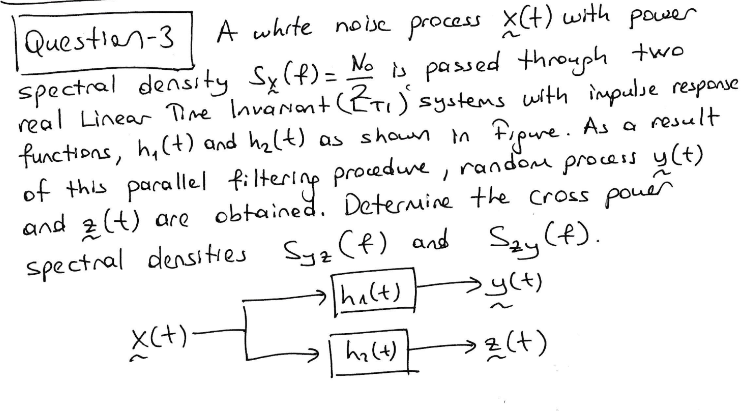 Question-3 A white noise process x(t) with power
spectral density Sx(f) = No/2 is passed through two
real Linear Time Invariant (LTI) systems with impulse response
functions, h₁(t) and h₂(t) as shown in Figure. As a result
of this parallel filtering procedure, random process y(t)
and z(t) are obtained. Determine the cross power
spectral densities Syz(f) and Szy(f).
h₁(t) y(t)
x(t)
h₂(t) z(t)